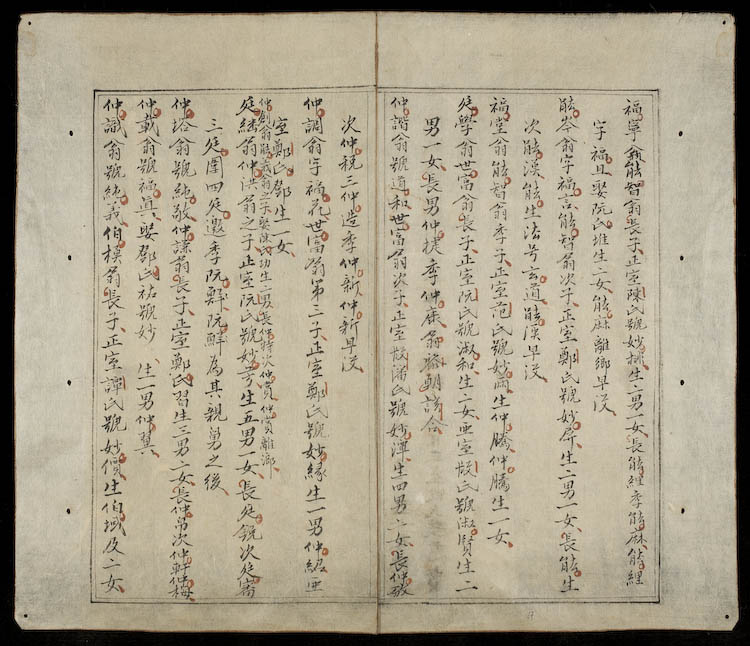 福寧翁能智翁長子正室陳氏號妙排生二男一女長能經季能麻能經
字福且娶阮氏堆生二女能麻離鄉早没
能岑翁字福言能智翁次子正室鄭氏號妙屏生二男一女長能生
次能漢能生法号玄道能漢早没
福堂翁能智翁季子正室范氏號妙兩生仲騰仲騰生一女
廷學翁世富翁長子正室阮氏號淑和生二女亜室段氏號淑賢生二
男一女長男仲捷季仲
仲諧翁號道和世富翁次子正室段潘氏號妙潭生四男二女長仲敬
次仲税三仲造季仲新仲新早没
仲調翁字福苑世富翁第三子正室鄭氏號妙緣生一男仲級亜
室鄭氏鄧生一女
仲創翁能義翁之子娶陳氏功生二男長仲特次仲賞仲賞離鄉
廷繡翁仲洪翁之子正室阮氏號妙芳生五男一女長廷銳次廷嵩
三廷圍四廷邀季阮鮮阮鮮為其親舅之後
仲塔翁號純敬仲謙翁長子正室鄭氏習生三男二女長仲帛次仲軒仲梅
仲載翁號福真娶鄧氏祐號妙 生一男仲翼
仲識翁號純義伯模翁長子正室譚氏號妙價生伯域及二女